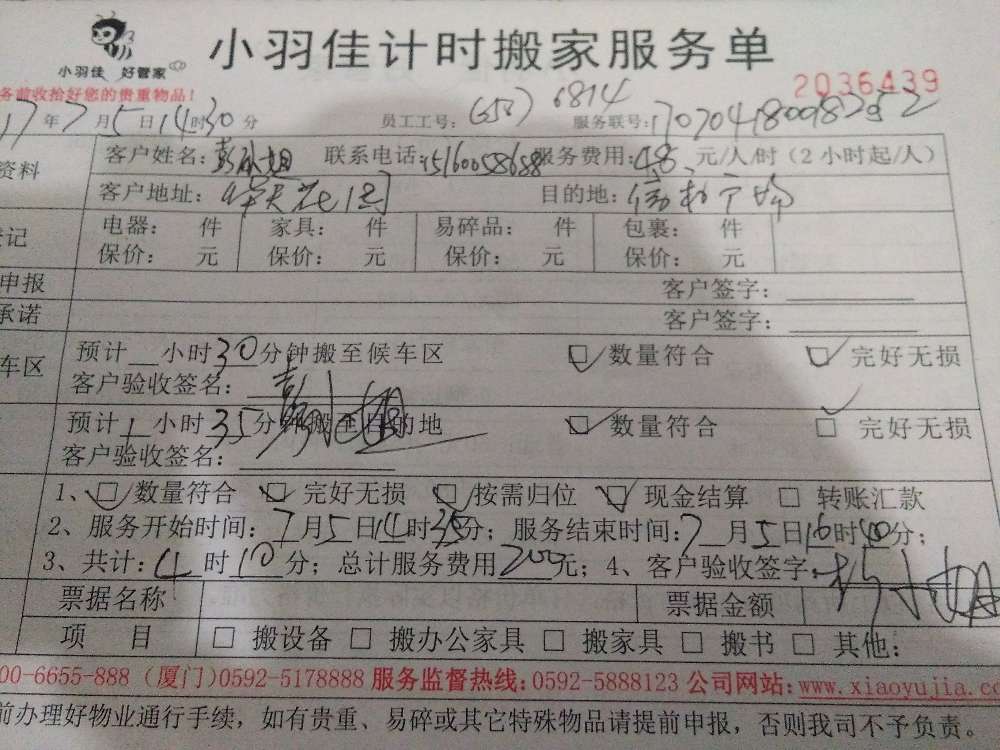 小羽佳计时搬家服务单
小羽佳 好管家
2036439
务前收拾好您的贵重物品!
17年7月5日14时30分 员工工号: 6814 服务联号:
资料 客户姓名: 联系电话:15160058658 服务费用:48元/人/时(2小时起/人)
客户地址: 目的地:
登记 电器: 件 家具: 件 易碎品: 件 包裹: 件
保价: 元 保价: 元 保价: 元 保价: 元
申报 客户签字:
承诺 客户签字:
车区 预计 小时30分钟搬至候车区 ☑数量符合 ☑完好无损
客户验收签名:
预计1小时35分钟搬至目的地 ☑数量符合 □完好无损
客户验收签名:
1、☑数量符合 ☑完好无损 ☑按需归位 ☑现金结算 □转账汇款
2、服务开始时间:7月5日14时35分;服务结束时间:7月5日16时40分;
3、共计:4时10分;总计服务费用200元;4、客户验收签字:
票据名称 票据金额
项 目 □搬设备 □搬办公家具 □搬家具 □搬书 □其他:
00-6655-888(厦门)0592-5178888 服务监督热线:0592-5888123 公司网站:www.xiaoyujia.co
前办理好物业通行手续,如有贵重、易碎或其它特殊物品请提前申报,否则我司不予负责。